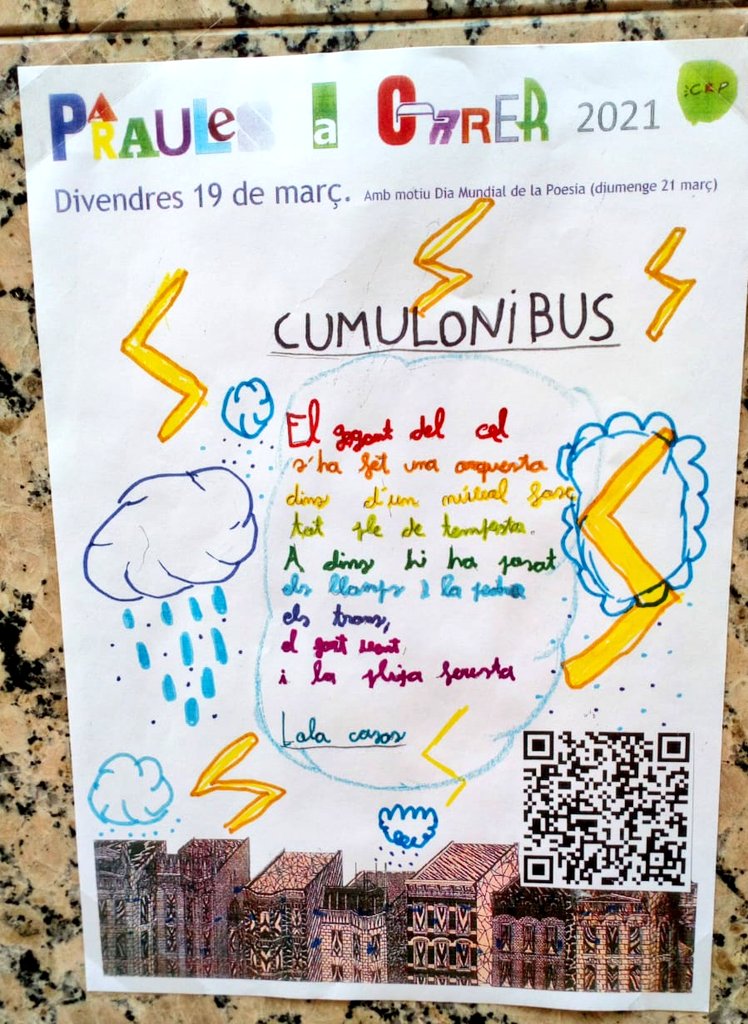 PARAULES a CARRER 2021
:CRP
Divendres 19 de març. Amb motiu Dia Mundial de la Poesia (diumenge 21 març)
CUMULONiBUS
El gegant del cel
s'ha fet una orquesta
dins d'un núvol fosc
tot ple de tempesta.
A dins hi ha posat
els llamps i la pedra
els trons,
el fort vent
i la pluja feresta
Lola casas